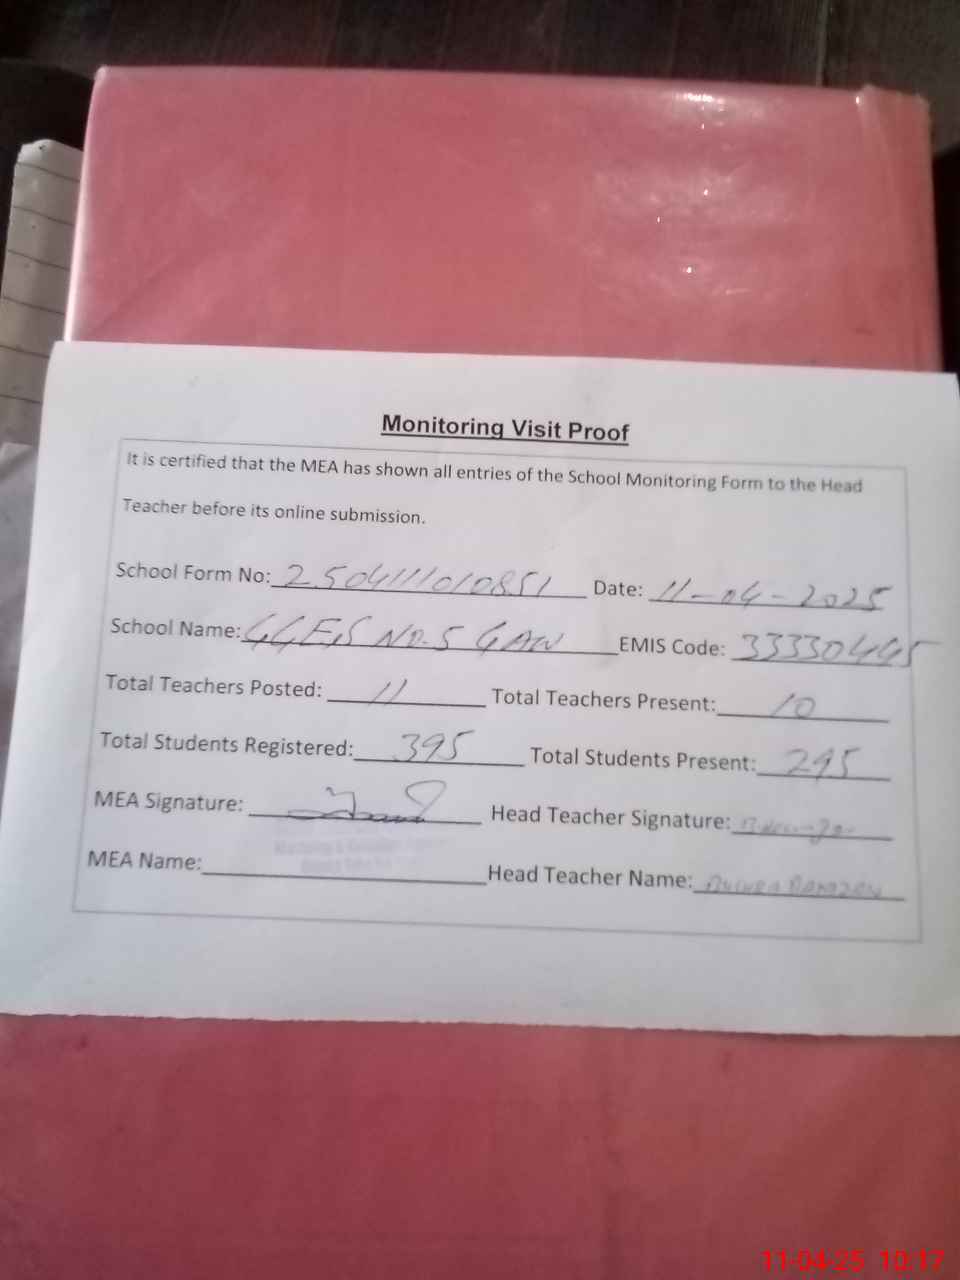 Monitoring Visit Proof
It is certified that the MEA has shown all entries of the School Monitoring Form to the Head
Teacher before its online submission.
School Form No: 250411010851 Date: 11-04-2025
School Name: GGES No. 5 GAW EMIS Code: 33330445
Total Teachers Posted: 11 Total Teachers Present: 10
Total Students Registered: 395 Total Students Present: 295
MEA Signature: Head Teacher Signature:
MEA Name: Head Teacher Name:
11-04-25 10:17